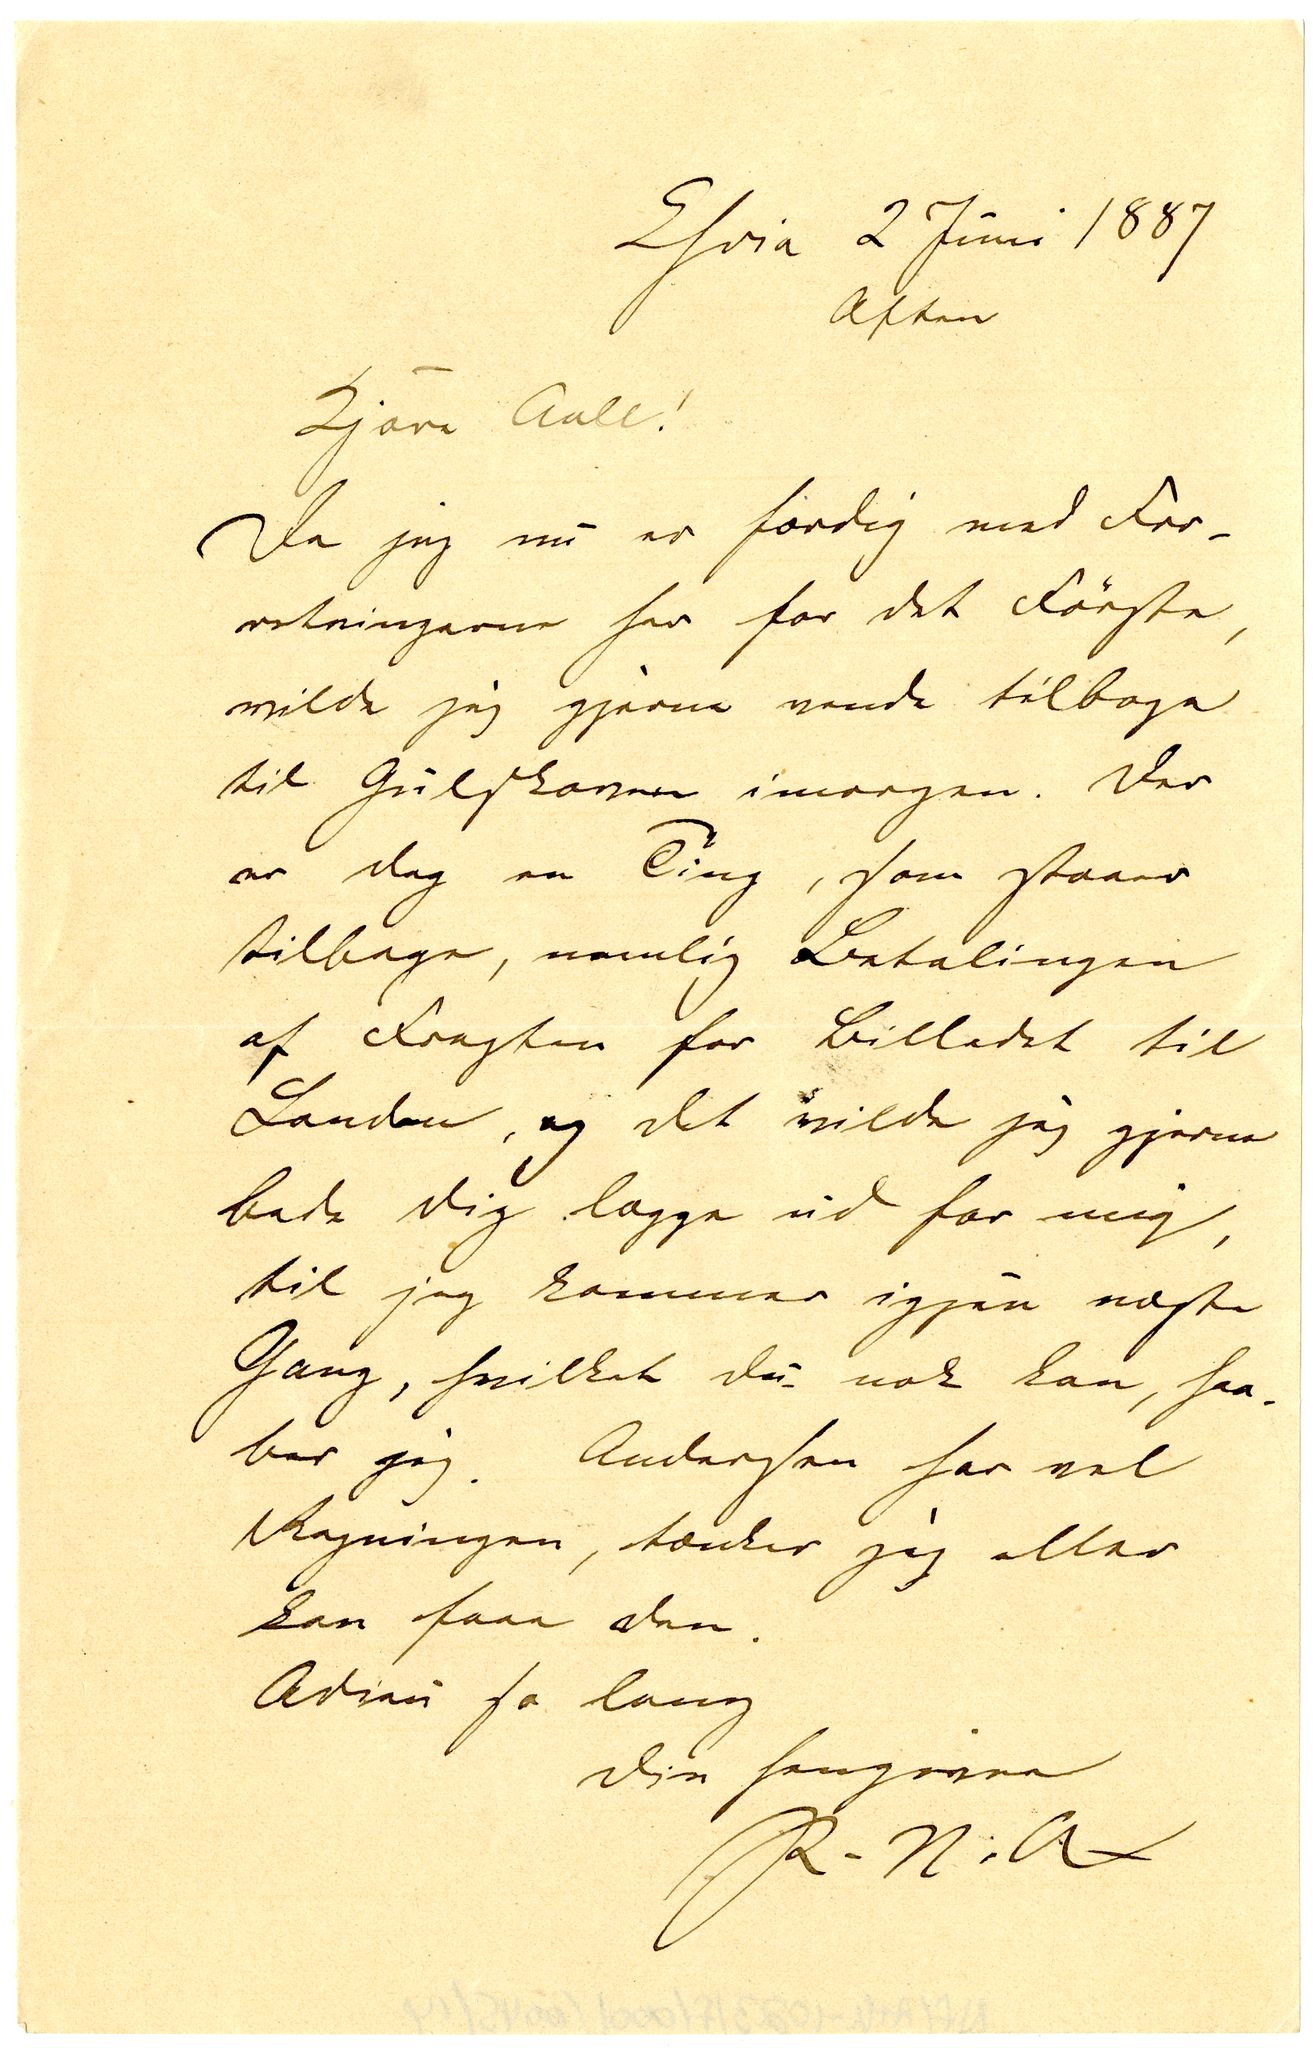 Chria 2 Juni 1887
Aften
Kjære Aall!
Da jeg nu er færdig med For-
retningerne her for det Første,
vilde jeg gjerne vende tilbage
til Gulskoven imorgen. Der
er dog en Ting, som staaer
tilbage, nemlig Betalingen
af Fragten for Billedet til
London, og det vilde jeg gjerne
bede Dig lægge ud for mig,
til jeg kommer igjen næste
Gang, hvilket Du nok kan, haa-
ber jeg. Andersen har vel
Regningen, tænker jeg eller
kan faae den.
Adieu så lang
Din hengivne
R. N. A